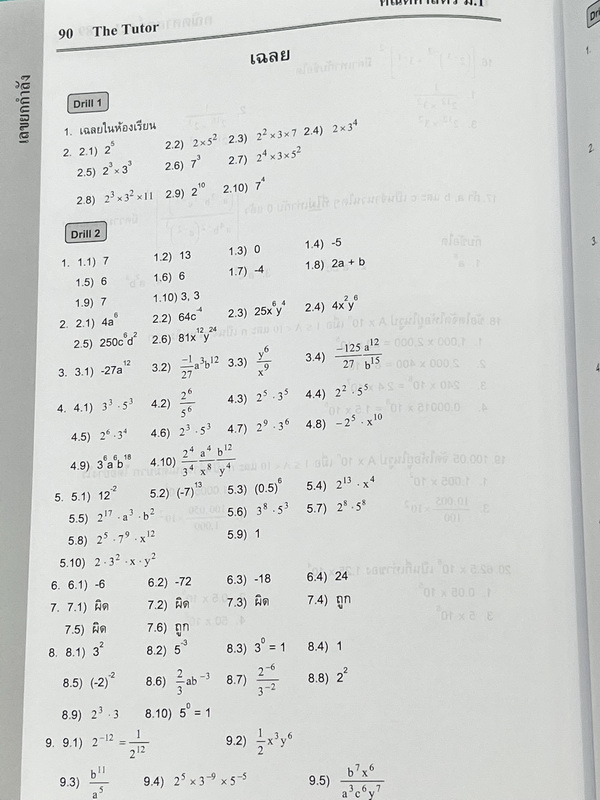 90 The Tutor
คณิตศาสตร์ ม.1
เลขยกกำลัง
เฉลย
Drill 1
1. เฉลยในห้องเรียน
2. 2.1) 2⁵ 2.2) 2×5² 2.3) 2²×3×7 2.4) 2×3⁴
2.5) 2³×3³ 2.6) 7³ 2.7) 2⁴×3×5²
2.8) 2³×3²×11 2.9) 2¹⁰ 2.10) 7⁴
Drill 2
1. 1.1) 7 1.2) 13 1.3) 0 1.4) -5
1.5) 6 1.6) 6 1.7) -4 1.8) 2a + b
1.9) 7 1.10) 3, 3
2. 2.1) 4a⁶ 2.2) 64c⁻⁴ 2.3) 25x⁶y⁴ 2.4) 4x²y⁶
2.5) 250c⁶d² 2.6) 81x¹²y²⁴
3. 3.1) -27a¹² 3.2) -1/27 a³b¹² 3.3) y⁶/x⁹ 3.4) -125/27 a¹²/b¹⁵
4. 4.1) 3³·5³ 4.2) 2⁶/5⁶ 4.3) 2⁵·3⁵ 4.4) 2²·5⁵
4.5) 2⁶·3⁴ 4.6) 2³·5³ 4.7) 2⁹·3⁶ 4.8) -2⁵·x¹⁰
4.9) 3⁶a⁶b¹⁸ 4.10) 2⁴/3⁴ a⁴/x⁸ b¹²/y⁴
5. 5.1) 12⁻² 5.2) (-7)¹³ 5.3) (0.5)⁶ 5.4) 2¹³·x⁴
5.5) 2¹⁷·a³·b² 5.6) 3⁸·5³ 5.7) 2⁸·5⁸
5.8) 2⁵·7⁹·x¹² 5.9) 1
5.10) 2·3²·x·y²
6. 6.1) -6 6.2) -72 6.3) -18 6.4) 24
7. 7.1) ผิด 7.2) ผิด 7.3) ผิด 7.4) ถูก
7.5) ผิด 7.6) ถูก
8. 8.1) 3² 8.2) 5⁻³ 8.3) 3⁰ = 1 8.4) 1
8.5) (-2)⁻² 8.6) 2/3 ab⁻³ 8.7) 2⁻⁶/3⁻² 8.8) 2²
8.9) 2³·3 8.10) 5⁰ = 1
9. 9.1) 2⁻¹² = 1/2¹² 9.2) 1/2 x³y⁶
9.3) b¹¹/a⁵ 9.4) 2⁵×3⁻⁹×5⁻⁵ 9.5) b⁷x⁶/a³c⁶y⁷